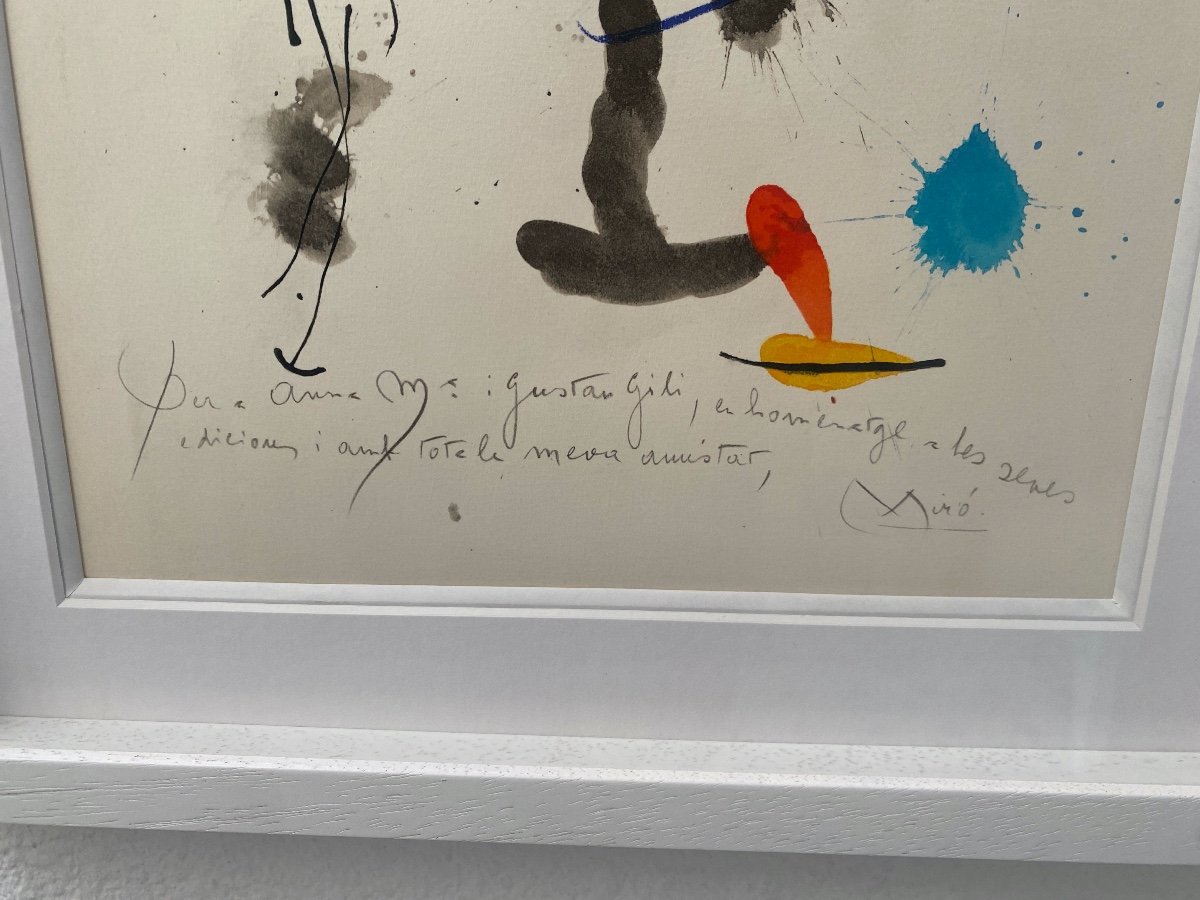 Per a Anna Mª i Gustau Gili, en homenatge a les seves
edicions i amb tota la meva amistat,
Miró.